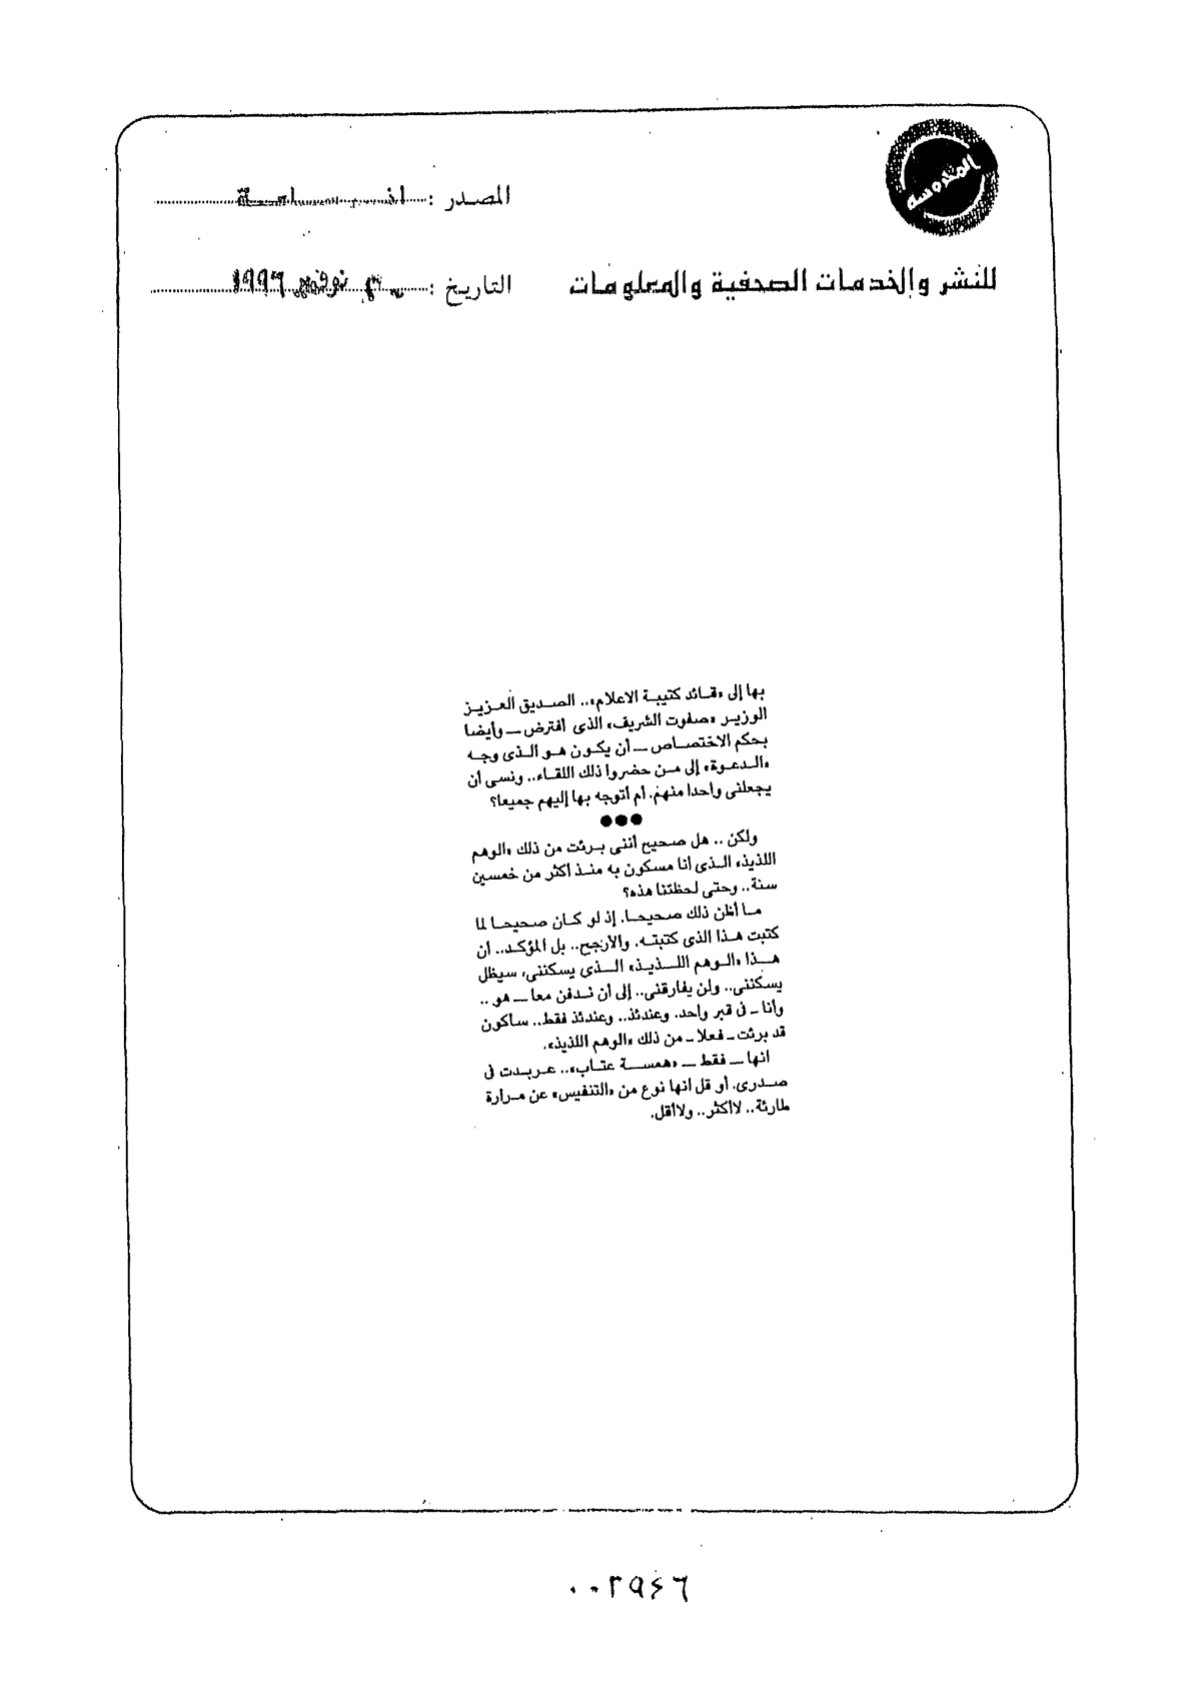 المدوسه
للنشر والخدمات الصحفية والمعلومات
المصدر :
التاريخ : نوفمبر ١٩٩٦
بها إلى «قائد كتيبة الاعلام».. الصديق العزيز
الوزير «صفوت الشريف» الذى أفترض ــ وأيضا
بحكم الاختصاص ــ أن يكون هو الذى وجه
«الدعوة» إلى من حضروا ذلك اللقاء.. ونسى أن
يجعلنى واحدا منهم. أم أتوجه بها إليهم جميعا؟
●●●
ولكن .. هل صحيح أننى برئت من ذلك «الوهم
اللذيذ» الذى أنا مسكون به منذ أكثر من خمسين
سنة.. وحتى لحظتنا هذه؟
ما أظن ذلك صحيحا. إذ لو كان صحيحا لما
كتبت هذا الذى كتبته. والأرجح.. بل المؤكد.. أن
هذا «الوهم اللذيذ» الذى يسكننى، سيظل
يسكننى.. ولن يفارقنى.. إلى أن ندفن معا ــ هو ..
وأنا ــ فى قبر واحد. وعندئذ.. وعندئذ فقط.. سأكون
قد برئت ــ فعلا ــ من ذلك «الوهم اللذيذ».
انها ــ فقط ــ «همسة عتاب».. عربدت فى
صدرى. أو قل انها نوع من «التنفيس» عن مرارة
طارئة.. لاأكثر.. ولاأقل.
٠٠٢٩٤٦